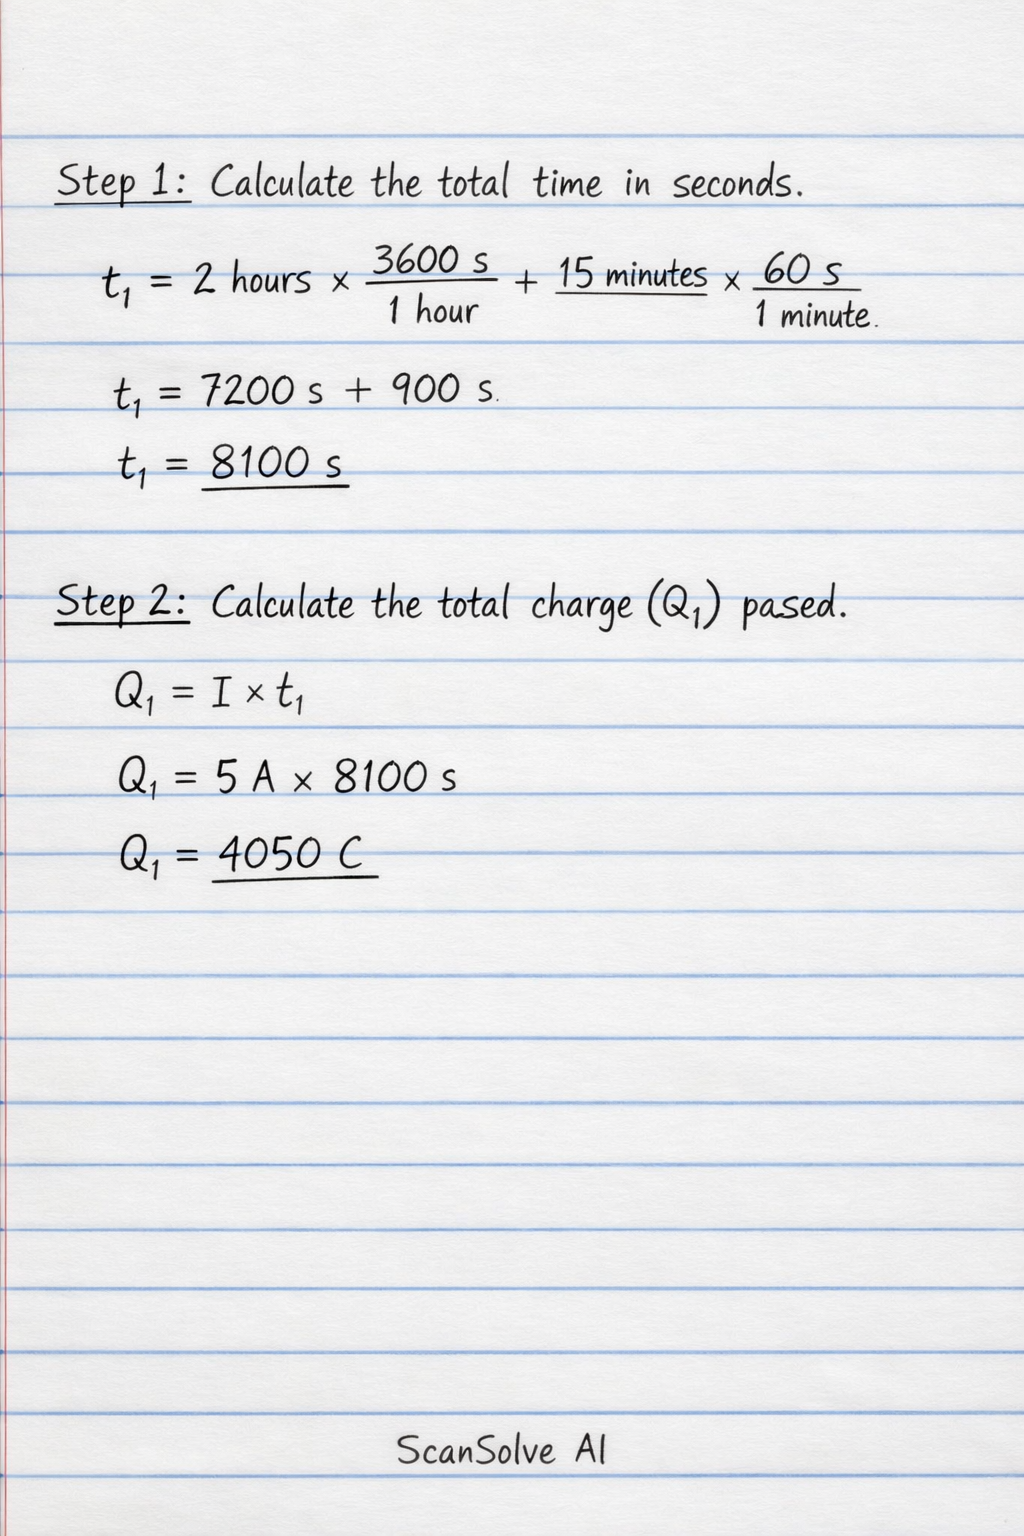 Step 1: Calculate the total time in seconds.
t₁ = 2 hours × 3600 s / 1 hour + 15 minutes × 60 s / 1 minute.
t₁ = 7200 s + 900 s.
t₁ = 8100 s
Step 2: Calculate the total charge (Q₁) pased.
Q₁ = I × t₁
Q₁ = 5 A × 8100 s
Q₁ = 4050 C
ScanSolve AI